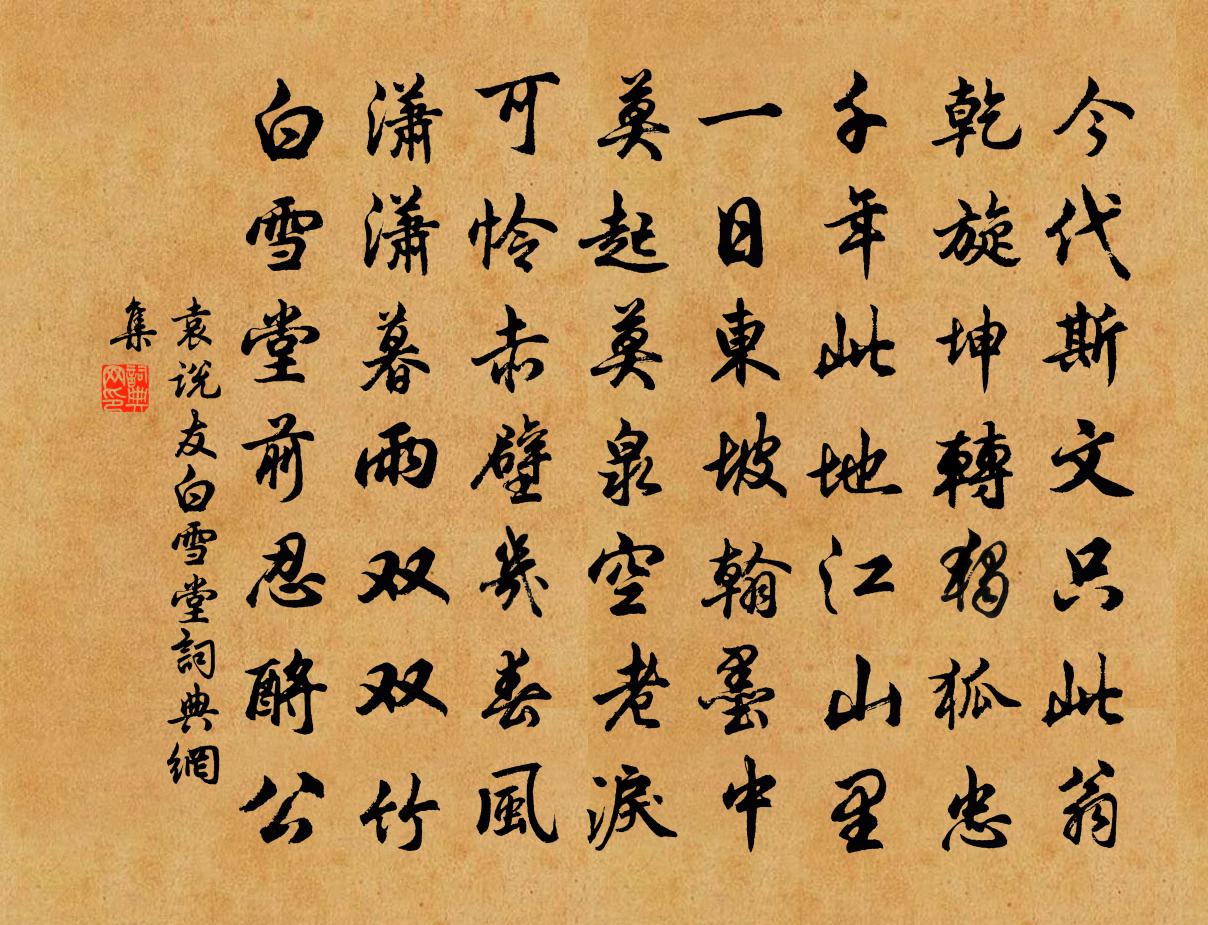 今代斯文只此翁
乾旋坤轉獨孤忠
千年此地江山里
一日東坡翰墨中
莫起莫泉空老淚
可怜赤壁幾春風
瀟瀟暮雨双双竹
白雪堂前忍酹公
袁说友白雪堂詞典網
集
詞典
网印